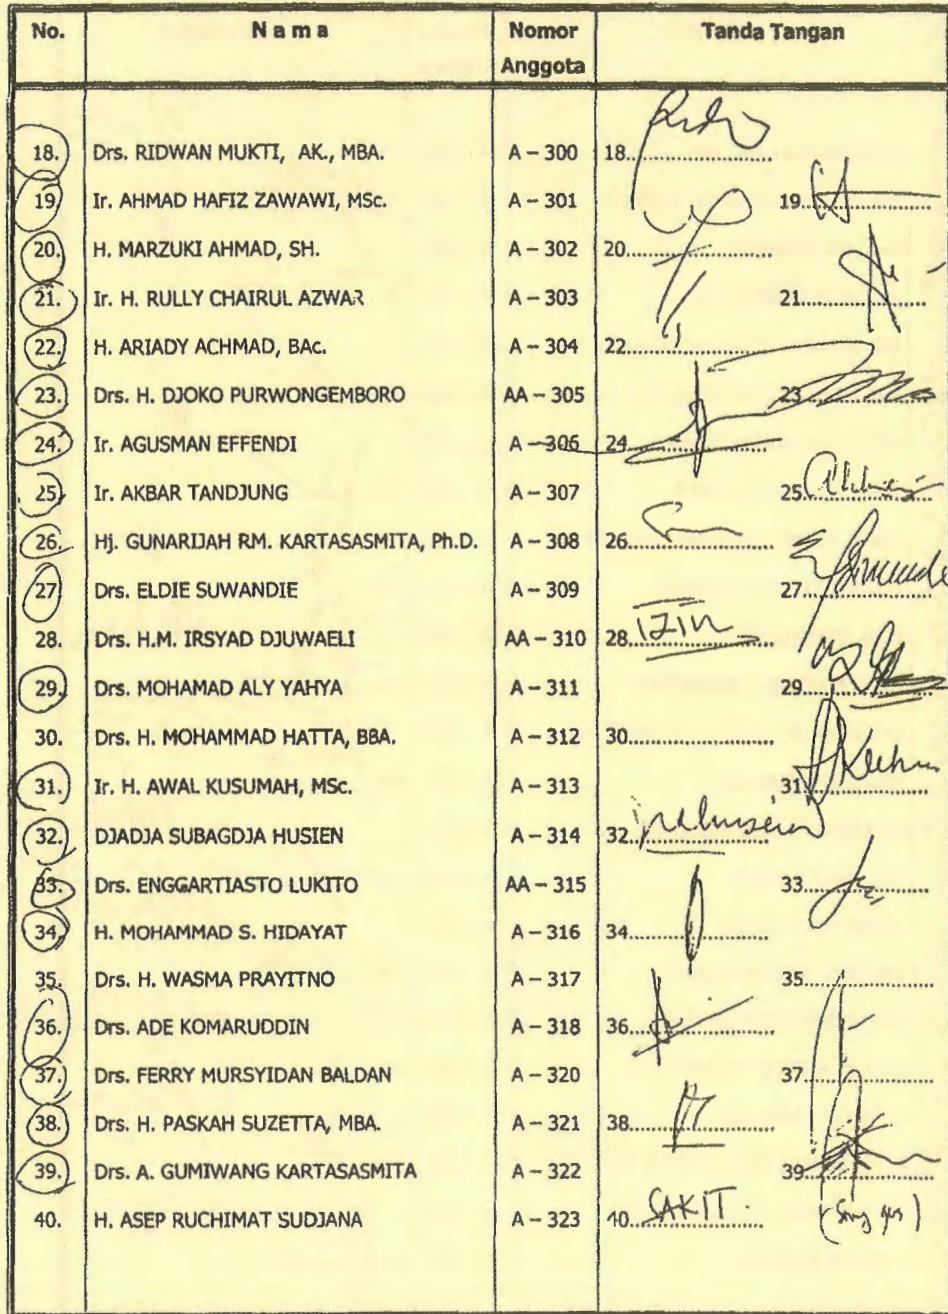 No. Nama Nomor Anggota Tanda Tangan
18. Drs. RIDWAN MUKTI, AK., MBA. A – 300 18.
19. Ir. AHMAD HAFIZ ZAWAWI, MSc. A – 301 19.
20. H. MARZUKI AHMAD, SH. A – 302 20.
21. Ir. H. RULLY CHAIRUL AZWAR A – 303 21
22. H. ARIADY ACHMAD, BAc. A – 304 22.
23. Drs. H. DJOKO PURWONGEMBORO AA – 305 23
24. Ir. AGUSMAN EFFENDI A – 306 24
25. Ir. AKBAR TANDJUNG A – 307 25
26. Hj. GUNARIJAH RM. KARTASASMITA, Ph.D. A – 308 26.
27 Drs. ELDIE SUWANDIE A – 309 27
28. Drs. H.M. IRSYAD DJUWAELI AA – 310 28. IZIN
29. Drs. MOHAMAD ALY YAHYA A – 311 29
30. Drs. H. MOHAMMAD HATTA, BBA. A – 312 30
31. Ir. H. AWAL KUSUMAH, MSc. A – 313 31
32. DJADJA SUBAGDJA HUSIEN A – 314 32
33. Drs. ENGGARTIASTO LUKITO AA – 315 33
34. H. MOHAMMAD S. HIDAYAT A – 316 34
35. Drs. H. WASMA PRAYITNO A – 317 35
36. Drs. ADE KOMARUDDIN A – 318 36
37. Drs. FERRY MURSYIDAN BALDAN A – 320 37
38. Drs. H. PASKAH SUZETTA, MBA. A – 321 38
39. Drs. A. GUMIWANG KARTASASMITA A – 322 39
40. H. ASEP RUCHIMAT SUDJANA A – 323 40. SAKIT.